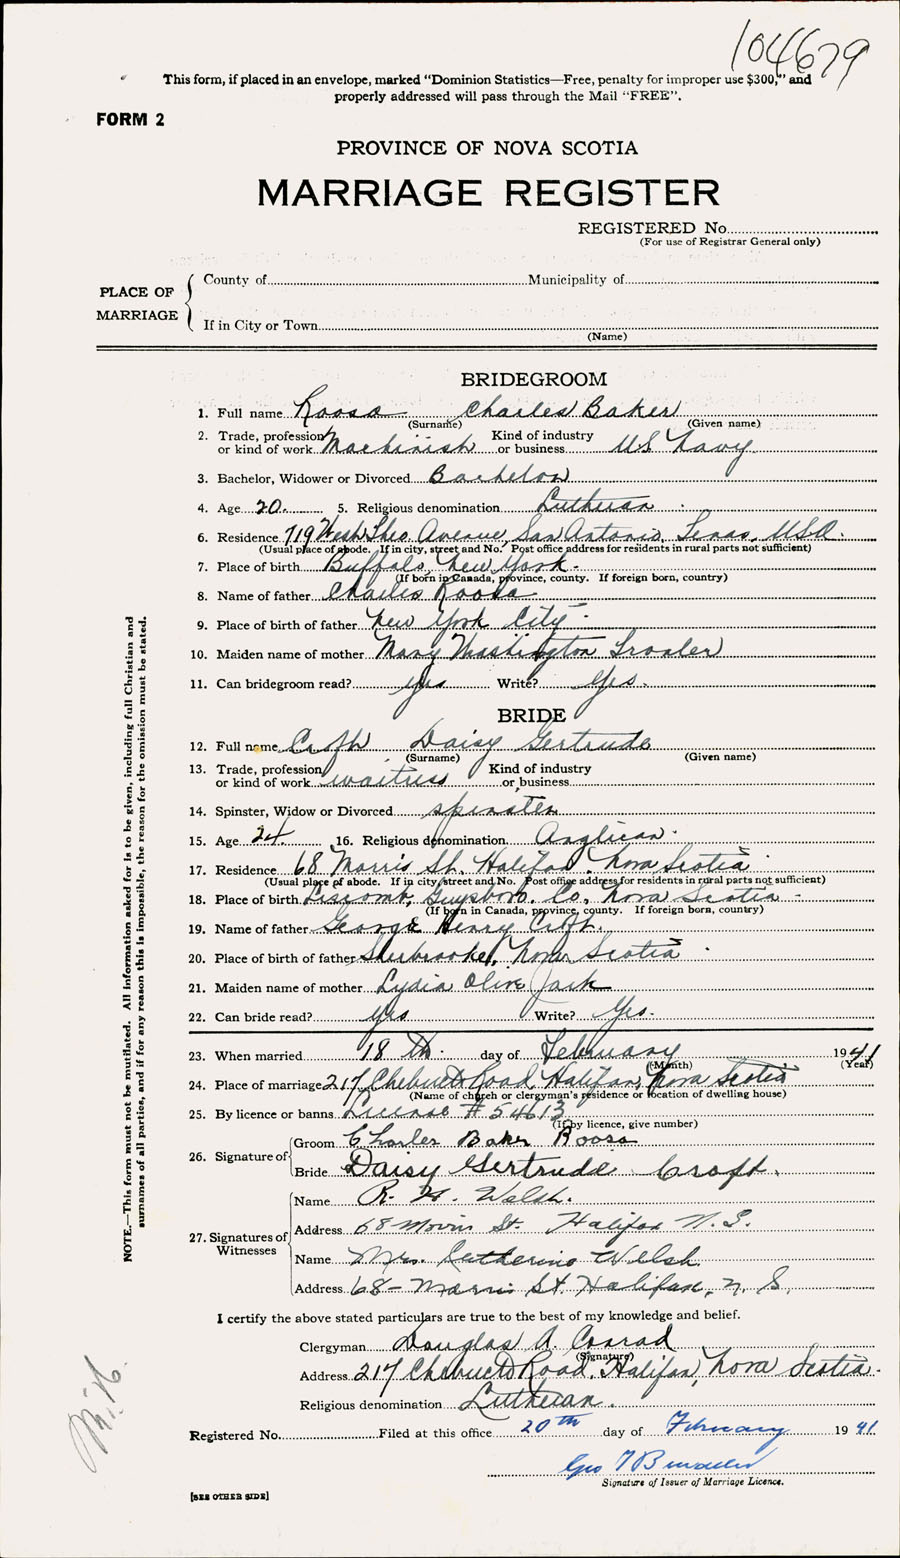 104679
This form, if placed in an envelope, marked "Dominion Statistics—Free, penalty for improper use $300," and
properly addressed will pass through the Mail "FREE".
FORM 2
PROVINCE OF NOVA SCOTIA
MARRIAGE REGISTER
REGISTERED No.
(For use of Registrar General only)
PLACE OF MARRIAGE
County of Municipality of
If in City or Town
(Name)
BRIDEGROOM
1. Full name Roosa Charles Baker
(Surname) (Given name)
2. Trade, profession or kind of work Machinist Kind of industry or business U.S. Navy
3. Bachelor, Widower or Divorced Bachelor
4. Age 20. 5. Religious denomination Lutheran
6. Residence 719 West Theo Avenue, San Antonio, Texas, USA.
(Usual place of abode. If in city, street and No. Post office address for residents in rural parts not sufficient)
7. Place of birth Buffalo, New York.
(If born in Canada, province, county. If foreign born, country)
8. Name of father Charles Roosa
9. Place of birth of father New York City
10. Maiden name of mother Mary Washington
11. Can bridegroom read? yes Write? Yes.
BRIDE
12. Full name Croft Daisy Gertrude
(Surname) (Given name)
13. Trade, profession or kind of work waitress Kind of industry or business
14. Spinster, Widow or Divorced spinster
15. Age 24. 16. Religious denomination Anglican.
17. Residence 68 Morris St. Halifax, Nova Scotia
(Usual place of abode. If in city, street and No. Post office address for residents in rural parts not sufficient)
18. Place of birth Liscomb, Guysboro. Co., Nova Scotia
(If born in Canada, province, county. If foreign born, country)
19. Name of father George Henry Croft.
20. Place of birth of father Sherbrooke, Nova Scotia
21. Maiden name of mother Lydia Olive Jack
22. Can bride read? yes Write? Yes.
23. When married 18 th. day of February 1941
(Month) (Year)
24. Place of marriage 217 Chebucto Road, Halifax, Nova Scotia
(Name of church or clergyman's residence or location of dwelling house)
25. By licence or banns License #54613
(If by licence, give number)
26. Signature of
Groom Charles Baker Roosa
Bride Daisy Gertrude Croft.
27. Signatures of Witnesses
Name R. H. Welsh.
Address 68 Morris St. Halifax N.S.
Name Mrs. Welsh
Address 68 - Morris St. Halifax, N. S.
I certify the above stated particulars are true to the best of my knowledge and belief.
Clergyman Douglas A. Conrad
(Signature)
Address 217 Chebucto Road, Halifax, Nova Scotia.
Religious denomination Lutheran.
Registered No. Filed at this office 20th day of February 1941.
Geo
Signature of Issuer of Marriage Licence.
[SEE OTHER SIDE]
NOTE.—This form must not be mutilated. All information asked for is to be given, including full Christian and
surnames of all parties, and if for any reason this is impossible, the reason for the omission must be stated.